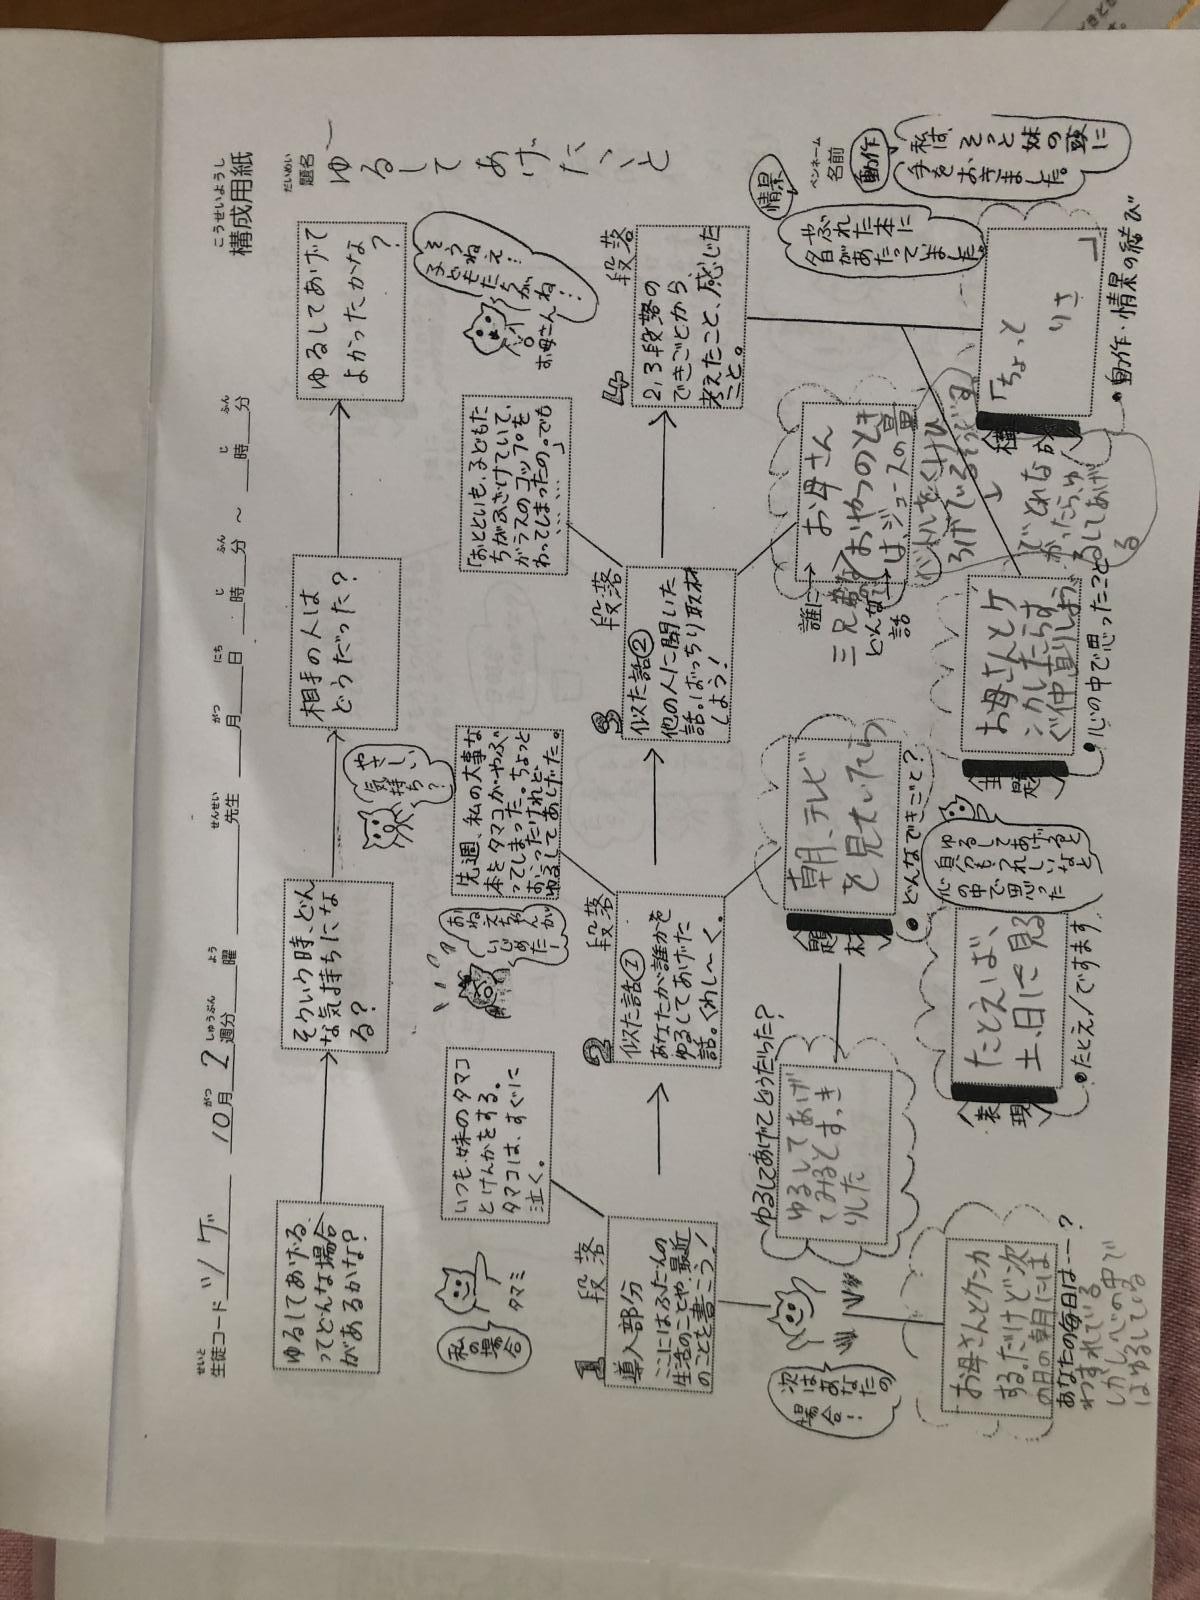 こうせいようし
構成用紙
せいと
生徒コード ツゲ
がつ しゅうぶん よう
10月2週分 曜
せんせい
先生
がつ にち じ ふん じ ふん
月 日 時 分 ～ 時 分
だいめい
題名
ゆるしてあげたいこと
ペンネーム
名前
ゆるしてあげる
ってどんな場合
があるかな?
そういう時、どん
な気持ちにな
る?
やさしい
気持ち?
相手の人は
どうだった?
ゆるしてあげて
よかったかな
?
そう
ねえ…
お母さん
私の場合
タマミ
いつも妹のタマコ
とけんかをする。
タマコは、すぐに
泣く。
おねえちゃんが
いじめたー!
先週、私の大事な
本をタマコがやぶ
ってしまった。ちょっと
おこったけれど
ゆるしてあげた。
「おとといも、子どもた
ちがふざけていて、
ガラスのコップを
わってしまったの。でも
…………」
1段落
導入部分
ここにはふだんの
生活のことや、最近
のことを書こう!
2段落
似た話①
あなたが、誰かを
ゆるしてあげた
話。くわし～く。
3段落
似た話②
他の人に聞いた
話。ばっちり取材
しよう!
4段落
2,3段落の
できごとから、
考えたこと、感じた
こと。
次はあなたの
場合!
ゆるしてあげてどうだった?
ゆるしてあげ
てみるとすっき
りした
題材
朝、テレビ
を見ていたら
●どんなできごと?
誰に→
お母さん
三兄弟
どんな話→
おやつのとき
は、ジュースの量
情景
やぶれた本に
夕日があたっていました。
動作
私は、そっと妹の頭に
手をおきました。
お母さんとケンカ
する。だけど次
の日の朝には
わすれている
あなたの毎日は……?
しかし心の中で
はゆるしている
表現
たとえば、
土、日に見る
●たとえ/ですます
ゆるしてあげると
自分もうれしいなと
心の中で思った
主題
お母さんとケ
ンカしたらす
ぐ仲直りしよう
●心の中で思ったこと
ゆるしてあげ
る
「ちょっと
りさ
」
●動作・情景の結び